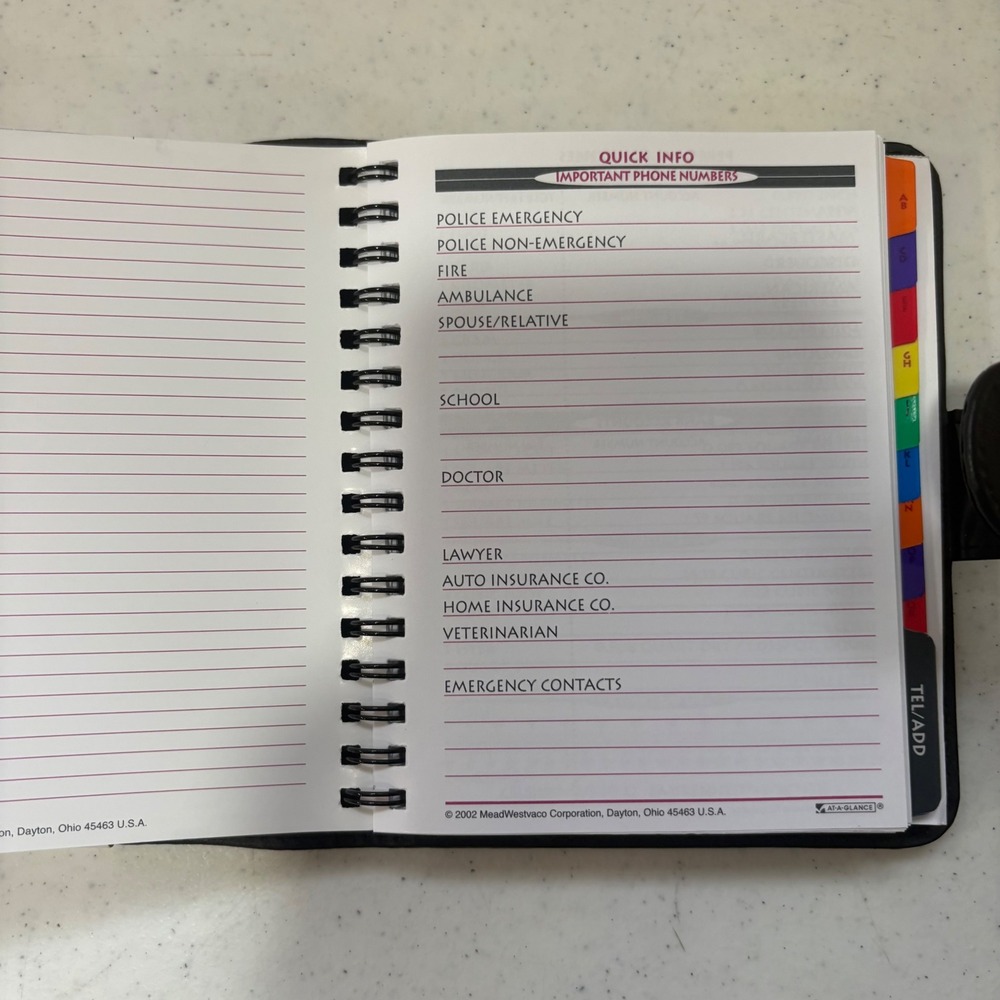 on, Dayton, Ohio 45463 U.S.A.
QUICK INFO
IMPORTANT PHONE NUMBERS
POLICE EMERGENCY
POLICE NON-EMERGENCY
FIRE
AMBULANCE
SPOUSE/RELATIVE
SCHOOL
DOCTOR
LAWYER
AUTO INSURANCE CO.
HOME INSURANCE CO.
VETERINARIAN
EMERGENCY CONTACTS
© 2002 MeadWestvaco Corporation, Dayton, Ohio 45463 U.S.A.
AT-A-GLANCE®
AB
CD
GH
KL
TEL/ADD